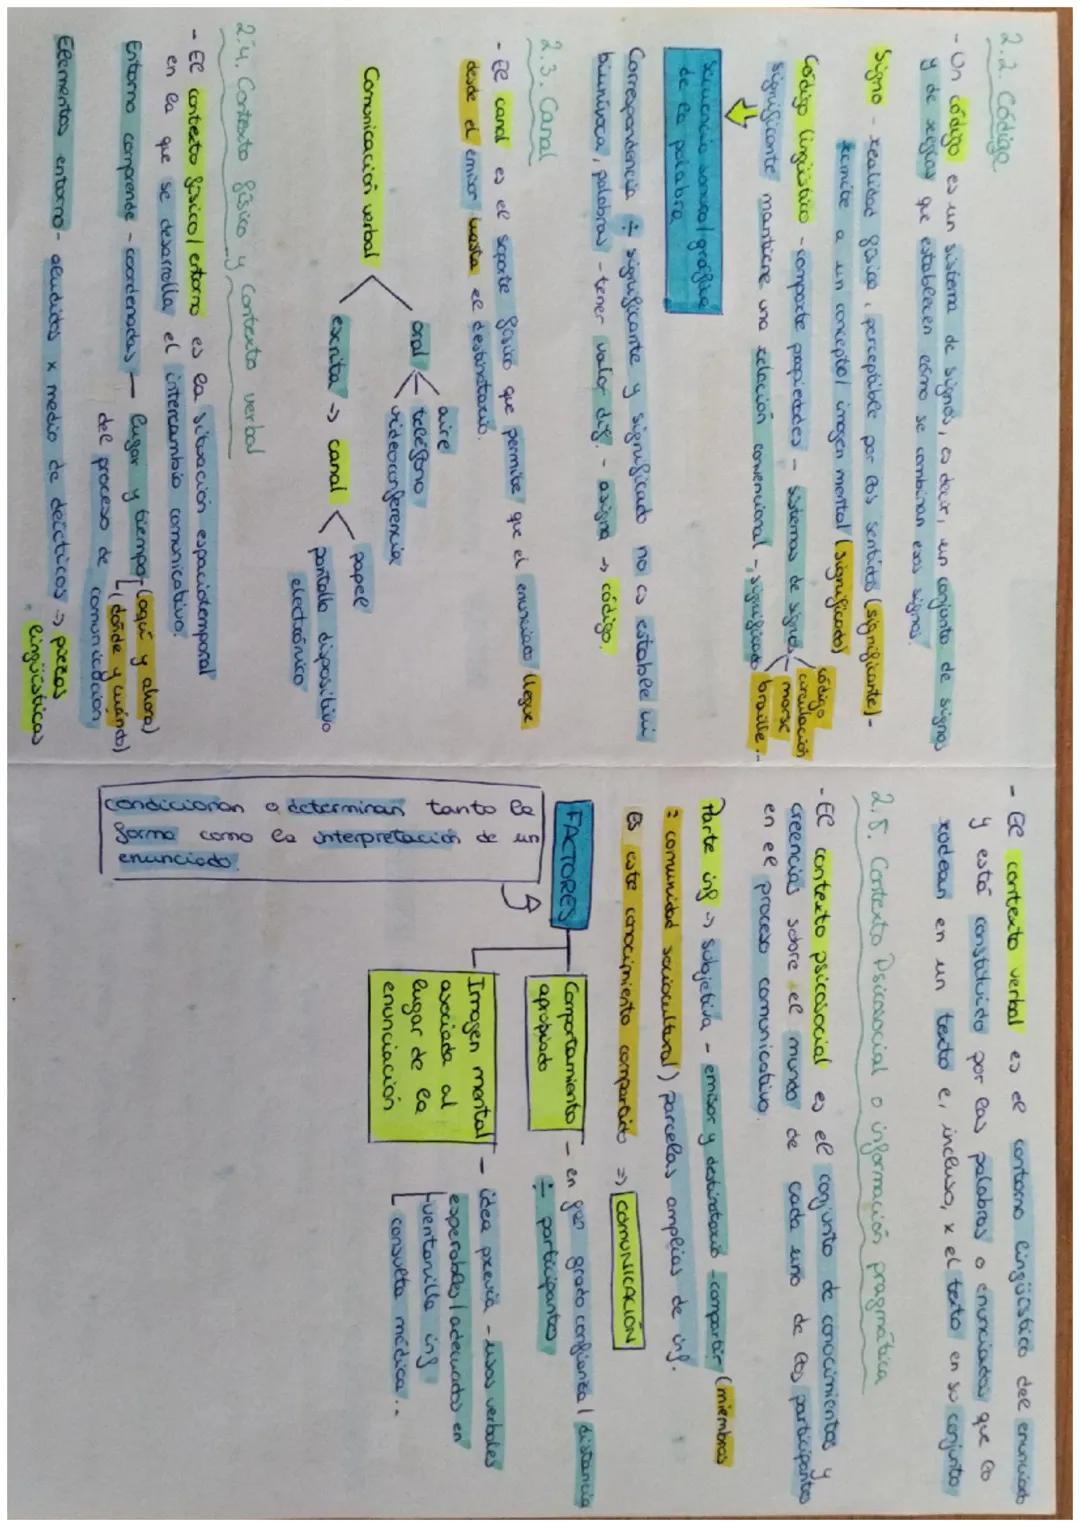 2.2. Código
- Un código es un sistema de signos, es decir, un conjunto de signos
y de reglas que establecen cómo se combinan esos signos.
Signo - realidad física, perceptible por los sentidos (significante) -
remite a un concepto/ imagen mental (significado)
Código lingüístico - comparte propiedades - sistemas de signos
código
circulación
morse
braille...
significante mantiene una relación convencional - significado
secuencia sonora/gráfica
de la palabra
Correspondencia ÷ significante y significado no es estable ni
biunívoca, palabras - tener valor dif. - asigna -> código.
2.3. Canal
- El canal es el soporte físico que permite que el enunciado llegue
desde el emisor hasta el destinatario.
Comunicación verbal
oral
aire
teléfono
videoconferencia
escrita -> canal
papel
pantalla dispositivo
electrónico
2.4. Contexto físico y Contexto verbal
- El contexto físico/entorno es la situación espaciotemporal
en la que se desarrolla el intercambio comunicativo.
Entorno comprende - coordenadas - lugar y tiempo (aquí y ahora)
(dónde y cuándo)
del proceso de comunicación
Elementos entorno - aludidos x medio de deícticos -> piezas
lingüísticas
- El contexto verbal es el contorno lingüístico del enunciado
y está constituido por las palabras o enunciados que lo
rodean en un texto e, incluso, x el texto en su conjunto
2.5. Contexto Psicosocial o información pragmática
- El contexto psicosocial es el conjunto de conocimientos y
creencias sobre el mundo de cada uno de los participantes
en el proceso comunicativo.
Parte inf -> subjetiva - emisor y destinatario - compartir (miembros
= comunidad sociocultural) parcelas amplias de inf.
Es este conocimiento compartido => COMUNICACIÓN
FACTORES
Comportamiento
apropiado
- en qué grado confianza / distancia
÷ participantes
Imagen mental
asociada al
lugar de la
enunciación
- idea previa - usos verbales
esperables/adecuados en
ventanilla inf
consulta médica...
condicionan o determinan tanto la
forma como la interpretación de un
enunciado.